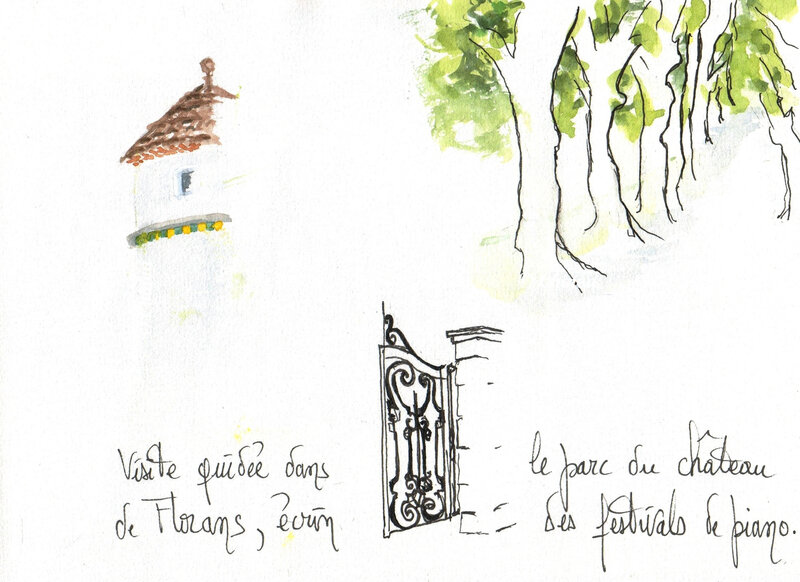 Visite guidée dans le parc du château
de Florans, écrin des festivals de piano.